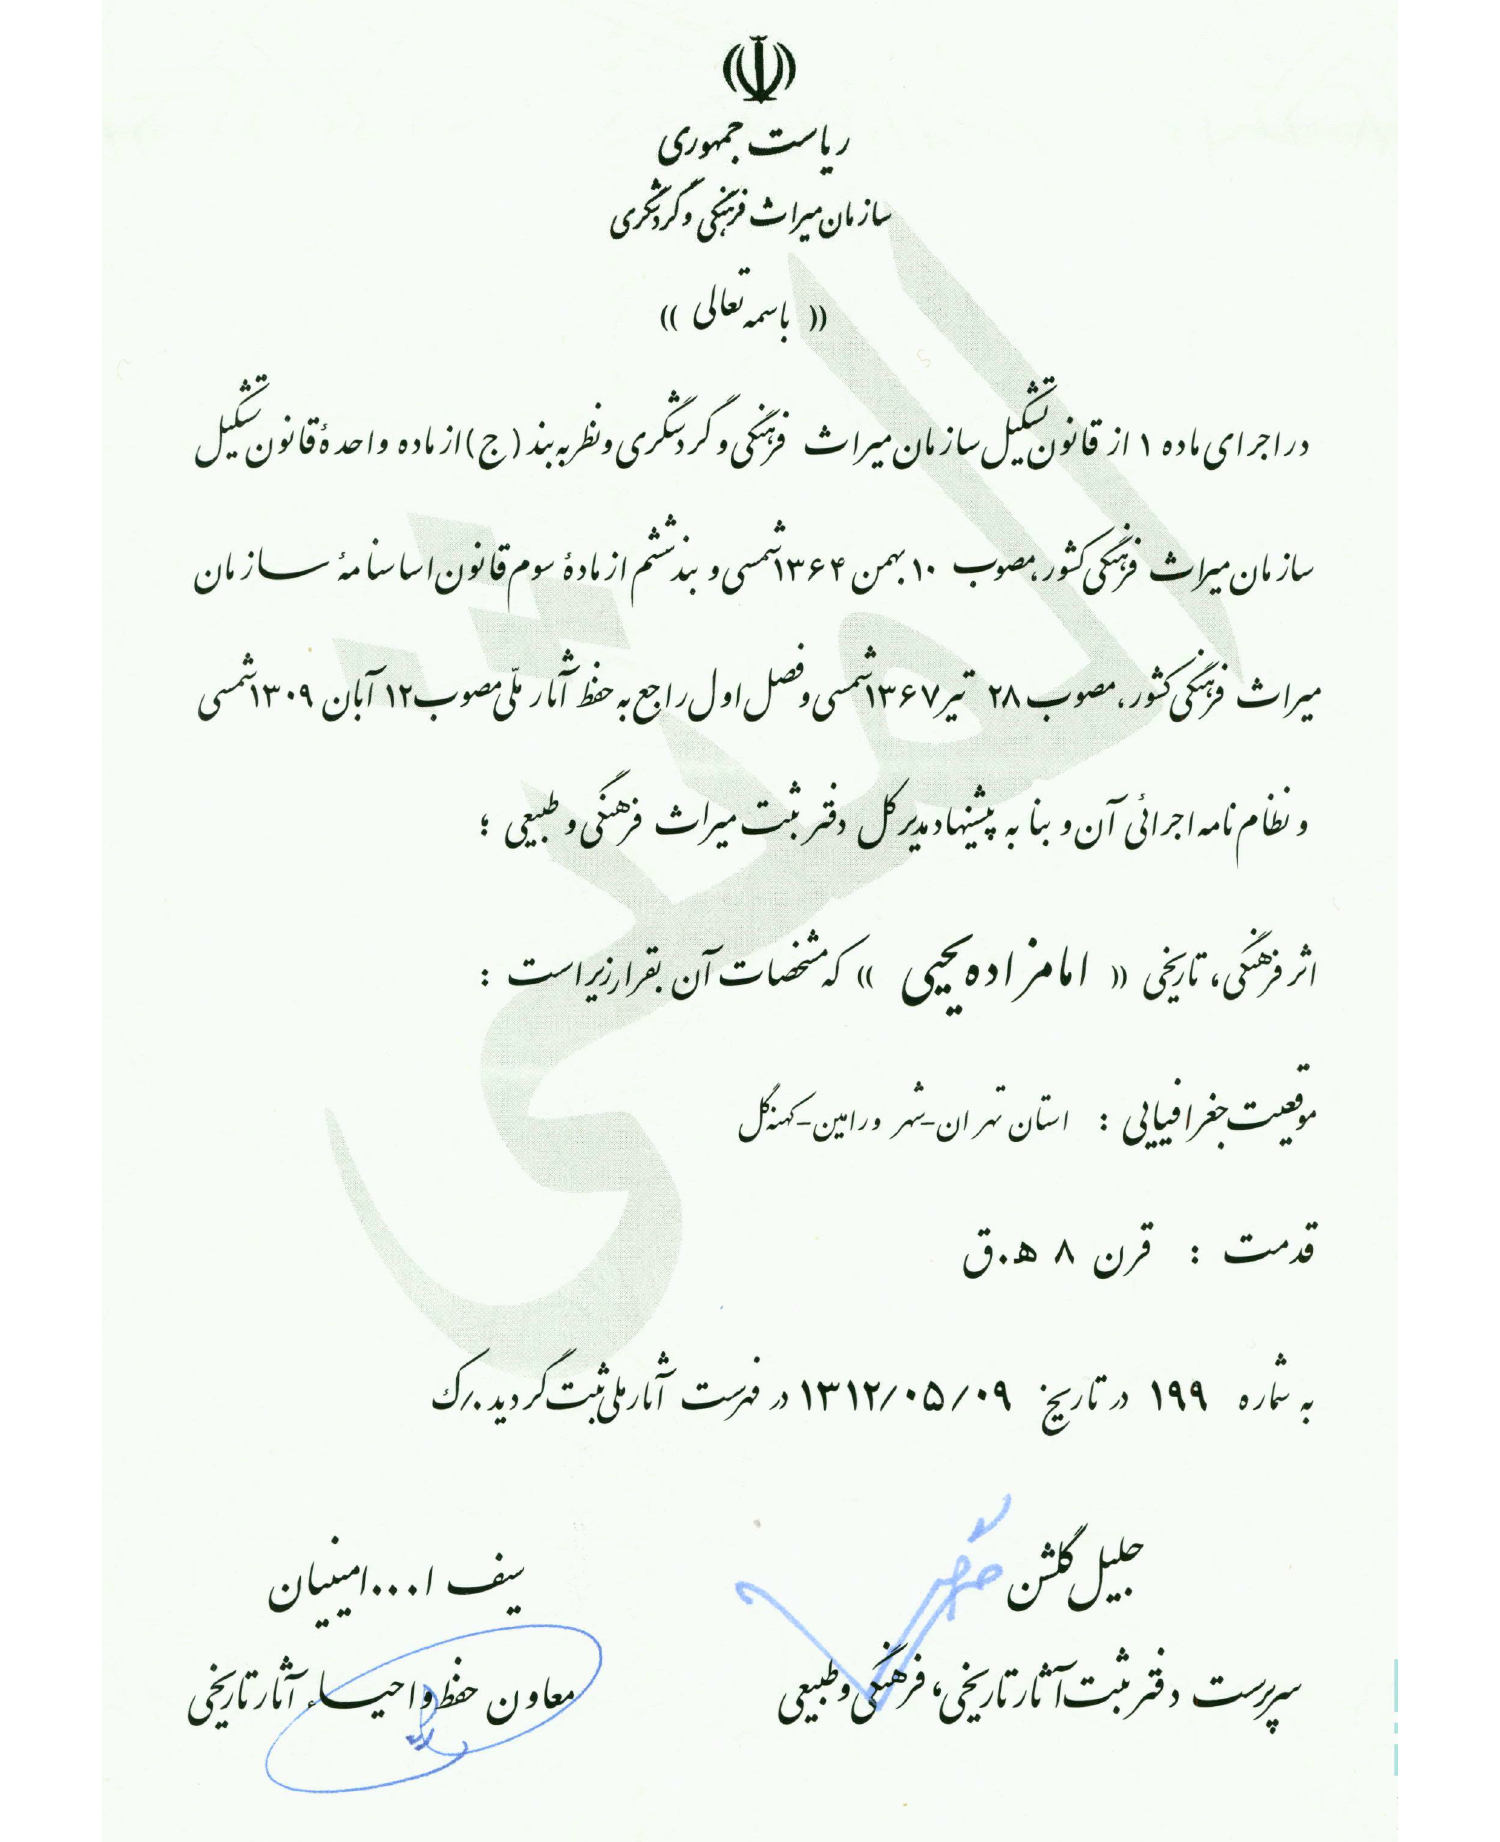 ریاست جمهوری
سازمان میراث فرهنگی و گردشگری
(( باسمه تعالی ))
در اجرای ماده ۱ از قانون تشکیل سازمان میراث فرهنگی و گردشگری و نظر به بند (ج) از ماده واحدهٔ قانون تشکیل
سازمان میراث فرهنگی کشور، مصوب ۱۰ بهمن ۱۳۶۴ شمسی و بند ششم از مادهٔ سوم قانون اساسنامهٔ سازمان
میراث فرهنگی کشور، مصوب ۲۸ تیر ۱۳۶۷ شمسی و فصل اول راجع به حفظ آثار ملّی مصوب ۱۲ آبان ۱۳۰۹ شمسی
و نظام نامه اجرائی آن و بنا به پیشنهاد مدیر کل دفتر ثبت میراث فرهنگی و طبیعی ؛
اثر فرهنگی، تاریخی (( امامزاده یحیی )) که مشخصات آن بقرار زیر است :
موقعیت جغرافیایی : استان تهران-شهر ورامین-کهنه گل
قدمت : قرن ۸ ه.ق
به شماره ۱۹۹ در تاریخ ۱۳۱۲/۰۵/۰۹ در فهرست آثار ملی ثبت گردید./ک
جلیل گلشن
سرپرست دفتر ثبت آثار تاریخی، فرهنگی و طبیعی
سیف ا... امینیان
معاون حفظ و احیاء آثار تاریخی